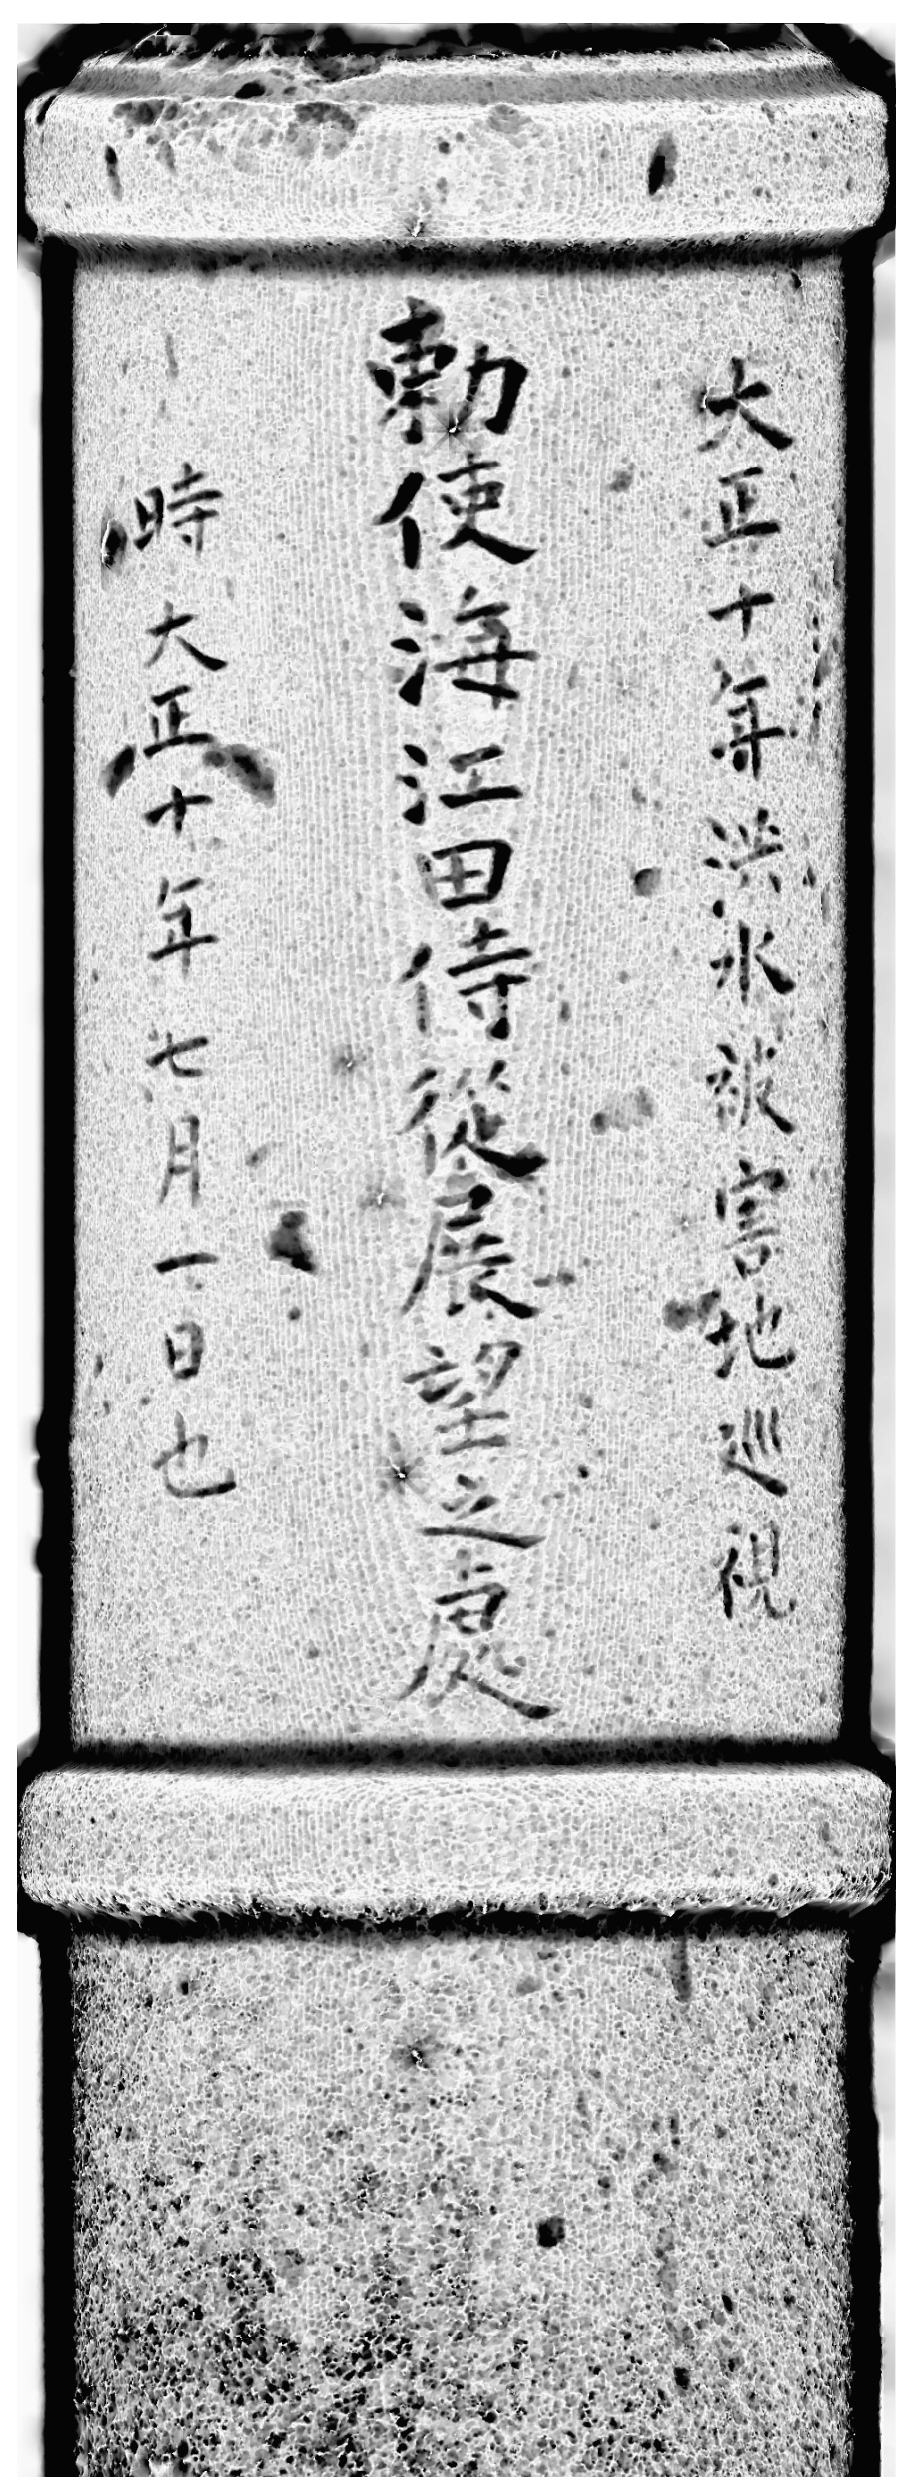 大正十年洪水被害地巡視
勅使海江田侍従展望之處
時大正十年七月一日也